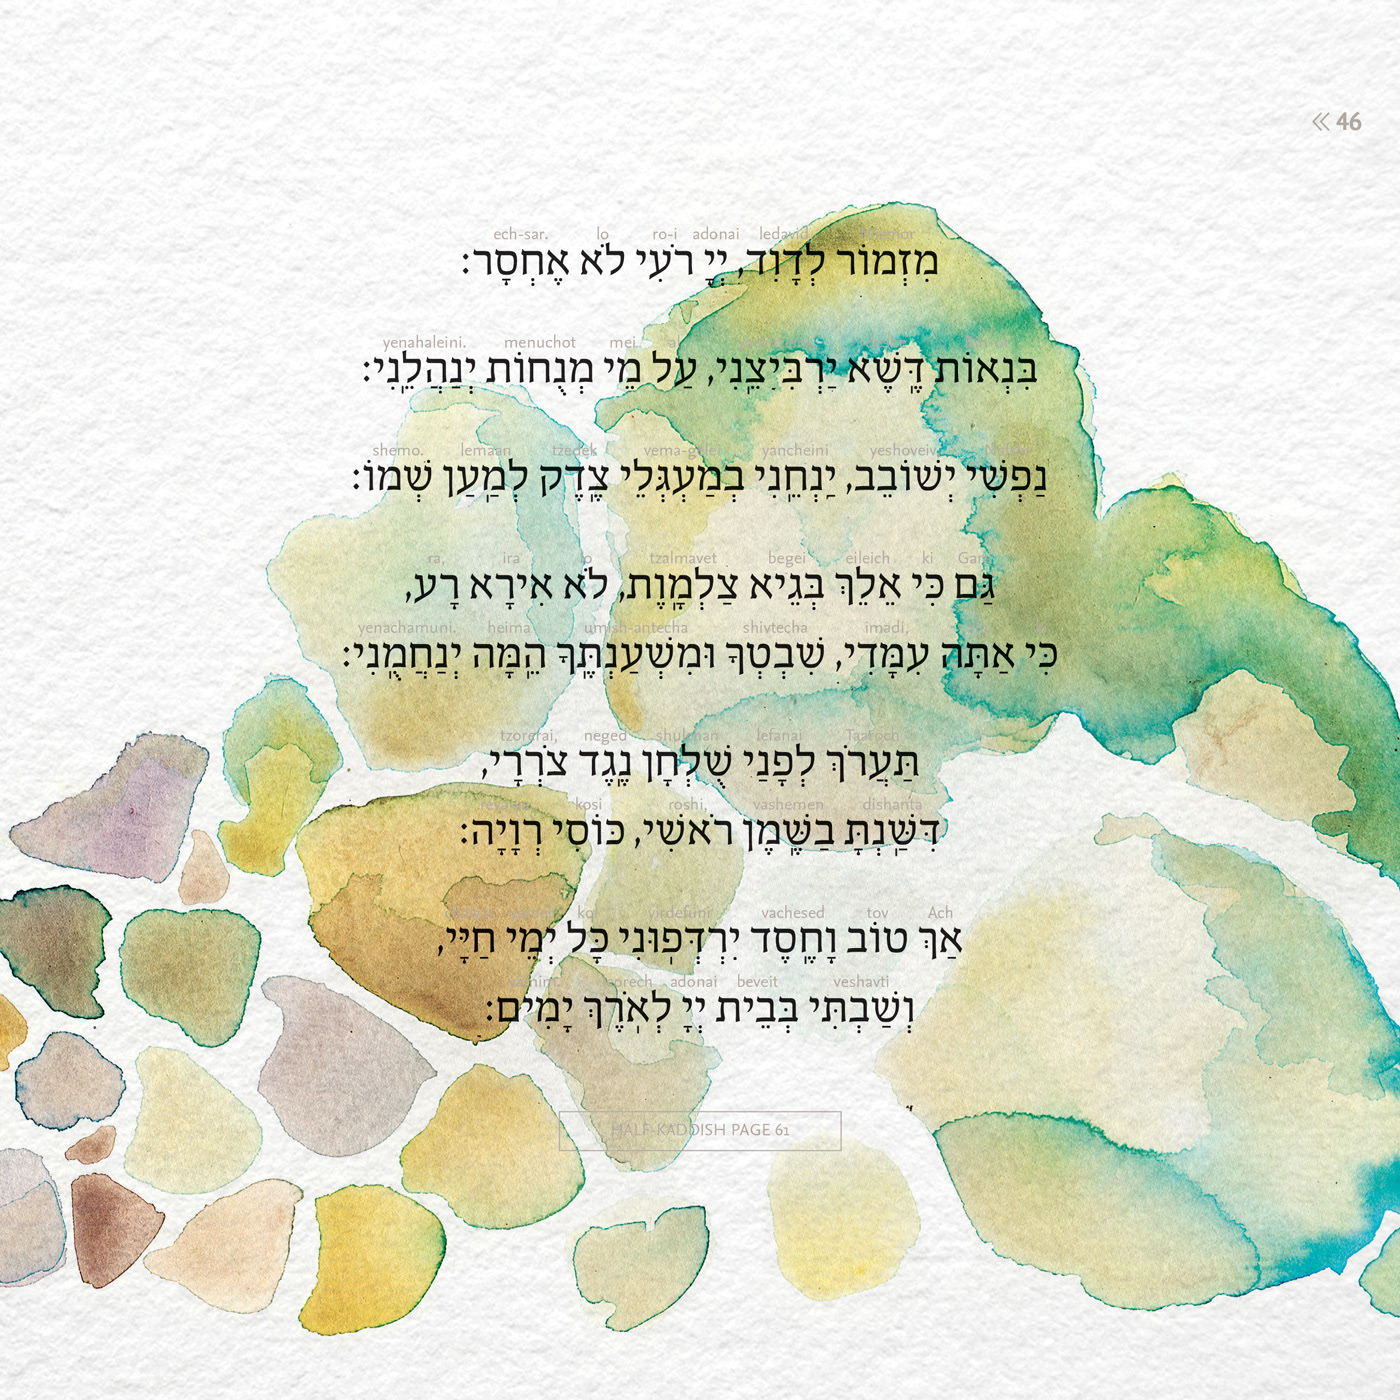 46
ech-sar. lo ro-i adonai ledavid, Mizmor
מִזְמוֹר לְדָוִד, יְיָ רֹעִי לֹא אֶחְסָר:
yenahaleini. menuchot mei al
בִּנְאוֹת דֶּשֶׁא יַרְבִּיצֵנִי, עַל מֵי מְנֻחוֹת יְנַהֲלֵנִי:
shemo. lemaan tzedek vema-gelei yancheini yeshoveiv, Nafshi
נַפְשִׁי יְשׁוֹבֵב, יַנְחֵנִי בְמַעְגְּלֵי צֶדֶק לְמַעַן שְׁמוֹ:
ra, ira lo tzalmavet begei eileich ki Gam
גַּם כִּי אֵלֵךְ בְּגֵיא צַלְמָוֶת, לֹא אִירָא רָע,
yenachamuni. heima umish-antecha shivtecha imadi,
כִּי אַתָּה עִמָּדִי, שִׁבְטְךָ וּמִשְׁעַנְתֶּךָ הֵמָּה יְנַחֲמֻנִי:
tzorerai, neged shulchan lefanai Taaroch
תַּעֲרֹךְ לְפָנַי שֻׁלְחָן נֶגֶד צֹרְרָי,
revaya. kosi roshi, vashemen dishanta
דִּשַּׁנְתָּ בַשֶּׁמֶן רֹאשִׁי, כּוֹסִי רְוָיָה:
kol yirdefuni vachesed tov Ach
אַךְ טוֹב וָחֶסֶד יִרְדְּפוּנִי כָּל יְמֵי חַיָּי,
orech adonai beveit veshavti
וְשַׁבְתִּי בְּבֵית יְיָ לְאֹרֶךְ יָמִים:
HALF-KADDISH PAGE 61